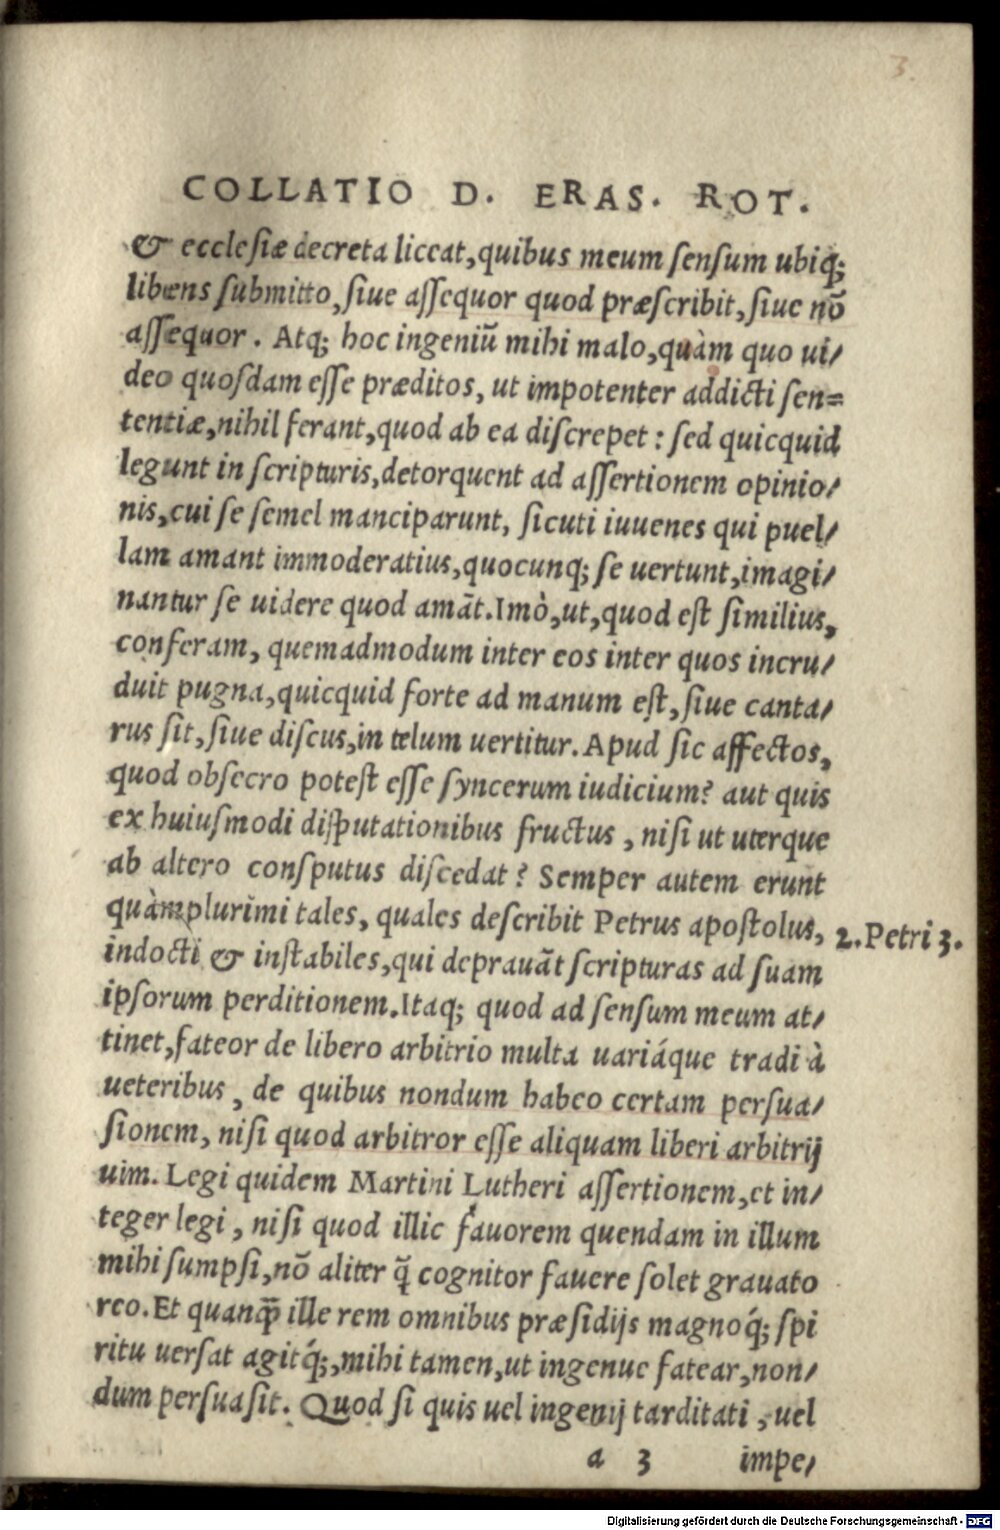 3.
COLLATIO D. ERAS. ROT.
& ecclesiæ decreta liceat, quibus meum sensum ubiq;
libens submitto, siue assequor quod præscribit, siue nõ
assequor. Atq; hoc ingeniũ mihi malo, quàm quo ui/
deo quosdam esse præditos, ut impotenter addicti sen=
tentiæ, nihil ferant, quod ab ea discrepet: sed quicquid
legunt in scripturis, detorquent ad assertionem opinio/
nis, cui se semel manciparunt, sicuti iuuenes qui puel/
lam amant immoderatius, quocunq; se uertunt, imagi/
nantur se uidere quod amãt. Imò, ut, quod est similius,
conferam, quemadmodum inter eos inter quos incru/
duit pugna, quicquid forte ad manum est, siue canta/
rus sit, siue discus, in telum uertitur. Apud sic affectos,
quod obsecro potest esse syncerum iudicium? aut quis
ex huiusmodi disputationibus fructus, nisi ut uterque
ab altero consputus discedat? Semper autem erunt
quàmplurimi tales, quales describit Petrus apostolus,
2. Petri 3.
indocti & instabiles, qui deprauãt scripturas ad suam
ipsorum perditionem. Itaq; quod ad sensum meum at/
tinet, fateor de libero arbitrio multa uariáque tradi à
ueteribus, de quibus nondum habeo certam persua/
sionem, nisi quod arbitror esse aliquam liberi arbitrij
uim. Legi quidem Martini Lutheri assertionem, et in/
teger legi, nisi quod illic fauorem quendam in illum
mihi sumpsi, nõ aliter q̃ cognitor fauere solet grauato
reo. Et quanq̃ ille rem omnibus præsidijs magnoq́; spi
ritu uersat agitq́;, mihi tamen, ut ingenue fatear, non/
dum persuasit. Quod si quis uel ingenij tarditati, uel
a 3 impe/
Digitalisierung gefördert durch die Deutsche Forschungsgemeinschaft - DFG